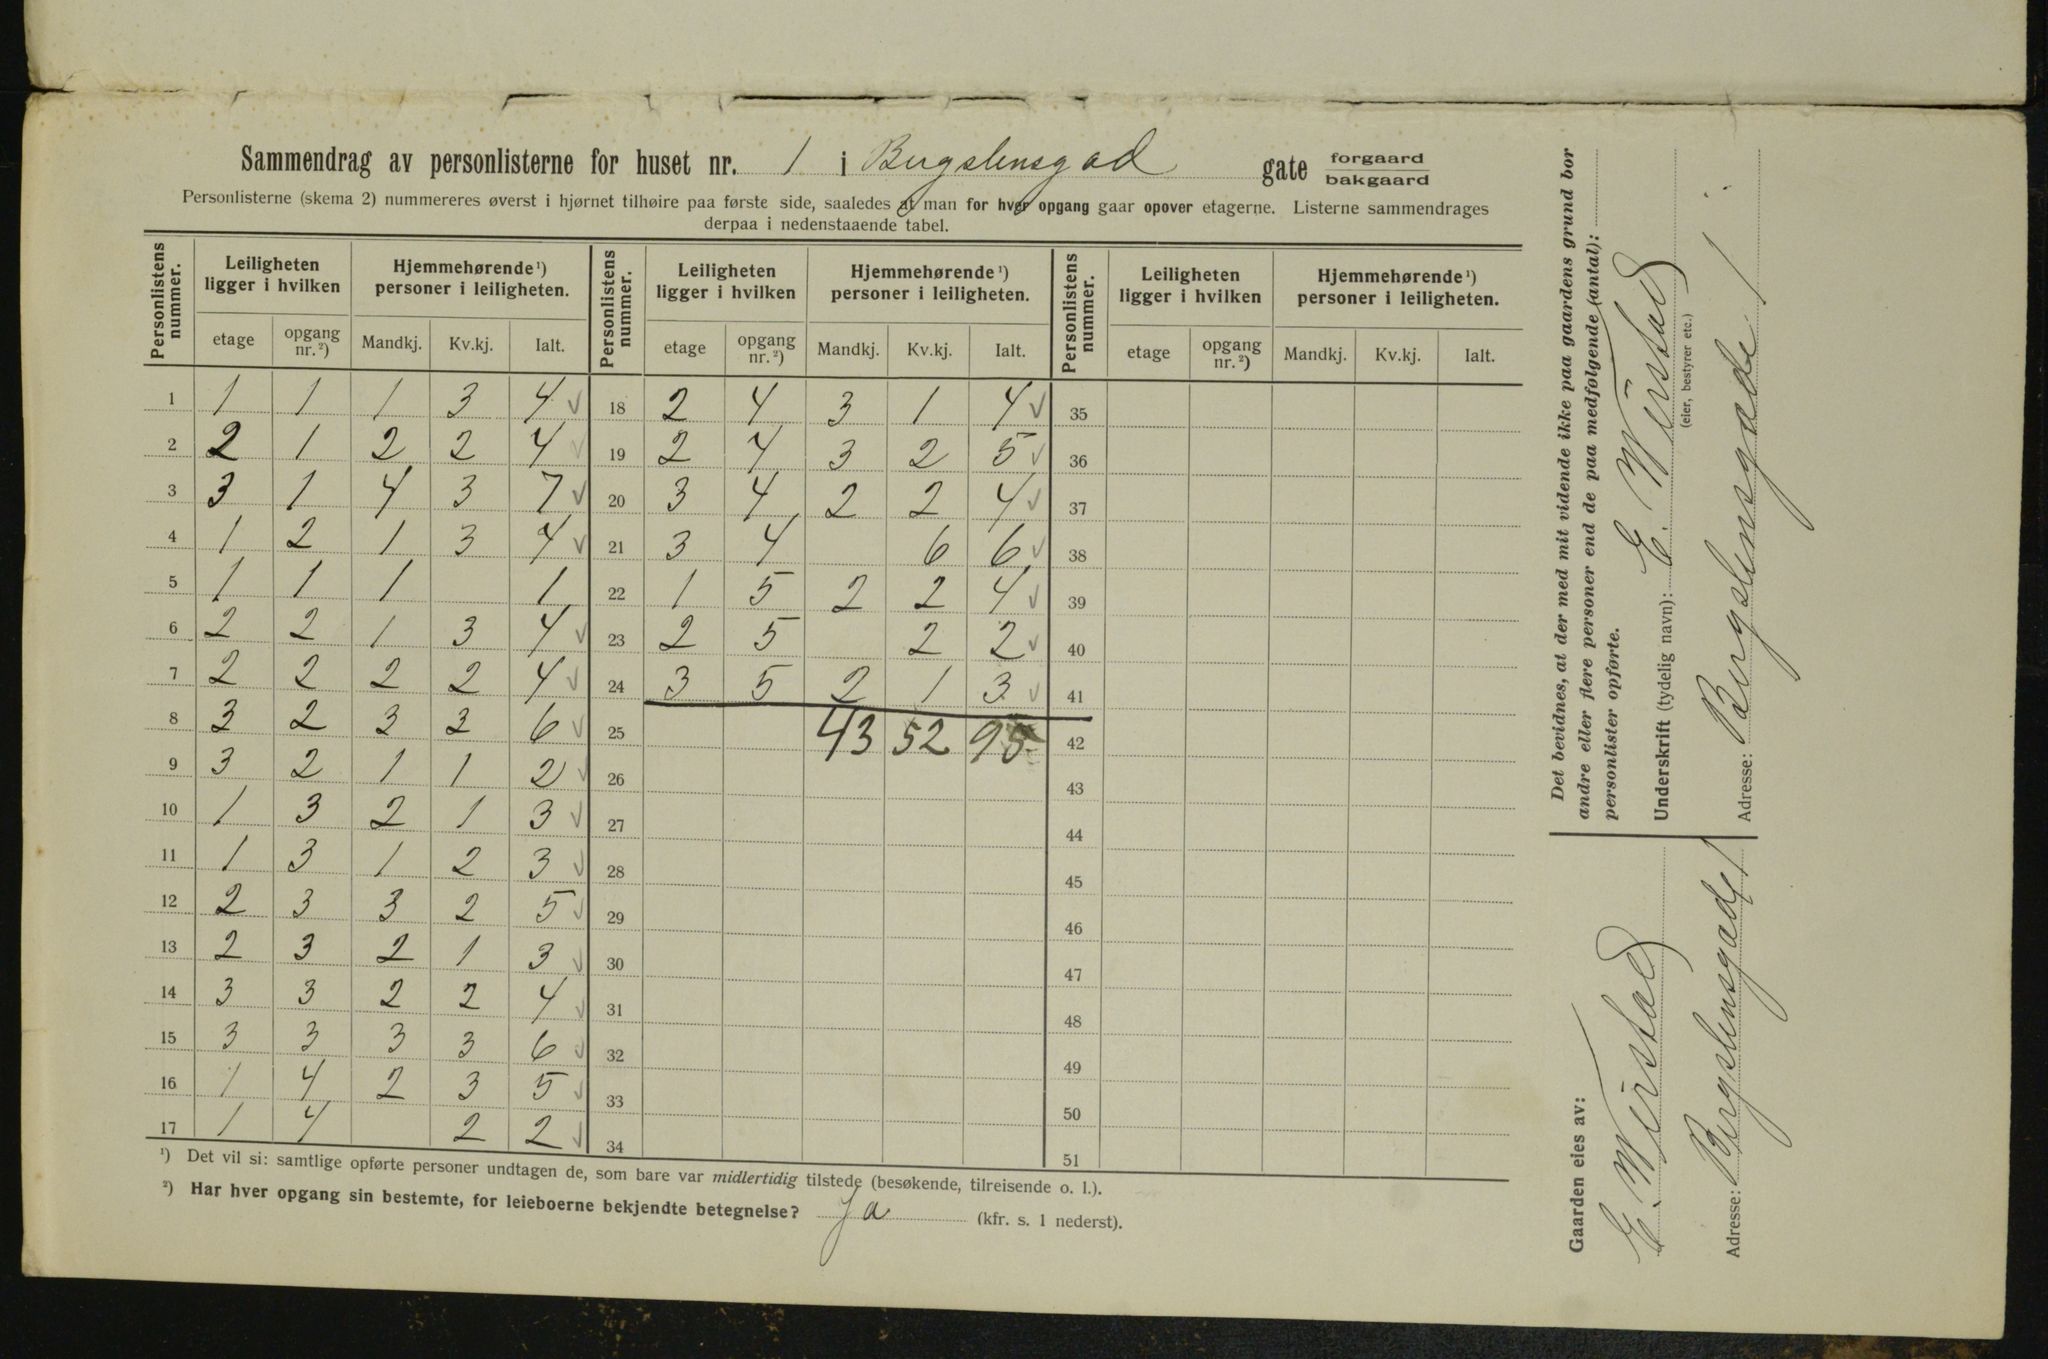 Sammendrag av personlisterne for huset nr. 1 i Bergslensgad gate forgaard bakgaard
Personlisterne (skema 2) nummereres øverst i hjørnet tilhøire paa første side, saaledes at man for hver opgang gaar opover etagerne. Listerne sammendrages
derpaa i nedenstaaende tabel.
Personlistens nummer. Leiligheten ligger i hvilken Hjemmehørende ¹) personer i leiligheten. Personlistens nummer. Leiligheten ligger i hvilken Hjemmehørende ¹) personer i leiligheten. Personlistens nummer. Leiligheten ligger i hvilken Hjemmehørende ¹) personer i leiligheten.
etage opgang nr. ²) Mandkj. Kv.kj. Ialt. etage opgang nr. ²) Mandkj. Kv.kj. Ialt. etage opgang nr. ²) Mandkj. Kv.kj. Ialt.
1 1 1 1 3 4 √ 18 2 4 3 1 4 √ 35
2 2 1 2 2 4 √ 19 2 4 3 2 5 √ 36
3 3 1 4 3 7 √ 20 3 4 2 2 4 √ 37
4 1 2 1 3 4 √ 21 3 4 6 6 √ 38
5 1 1 1 1 22 1 5 2 2 4 √ 39
6 2 2 1 3 4 √ 23 2 5 2 2 √ 40
7 2 2 2 2 4 √ 24 3 5 2 1 3 √ 41
8 3 2 3 3 6 √ 25 43 52 95 42
9 3 2 1 1 2 √ 26 43
10 1 3 2 1 3 √ 27 44
11 1 3 1 2 3 √ 28 45
12 2 3 3 2 5 √ 29 46
13 2 3 2 1 3 √ 30 47
14 3 3 2 2 4 √ 31 48
15 3 3 3 3 6 √ 32 49
16 1 4 2 3 5 √ 33 50
17 1 4 2 2 √ 34 51
¹) Det vil si: samtlige opførte personer undtagen de, som bare var midlertidig tilstede (besøkende, tilreisende o. l.).
²) Har hver opgang sin bestemte, for leieboerne bekjendte betegnelse? Ja (kfr. s. 1 nederst).
Det bevidnes, at der med mit vidende ikke paa gaardens grund bor
andre eller flere personer end de paa medfølgende (antal):
personlister opførte.
Underskrift (tydelig navn): E. Wirstad
(eier, bestyrer etc.)
Adresse: Bergslensgade 1
Gaarden eies av:
E. Wirstad
Adresse: Bergslensgade 1